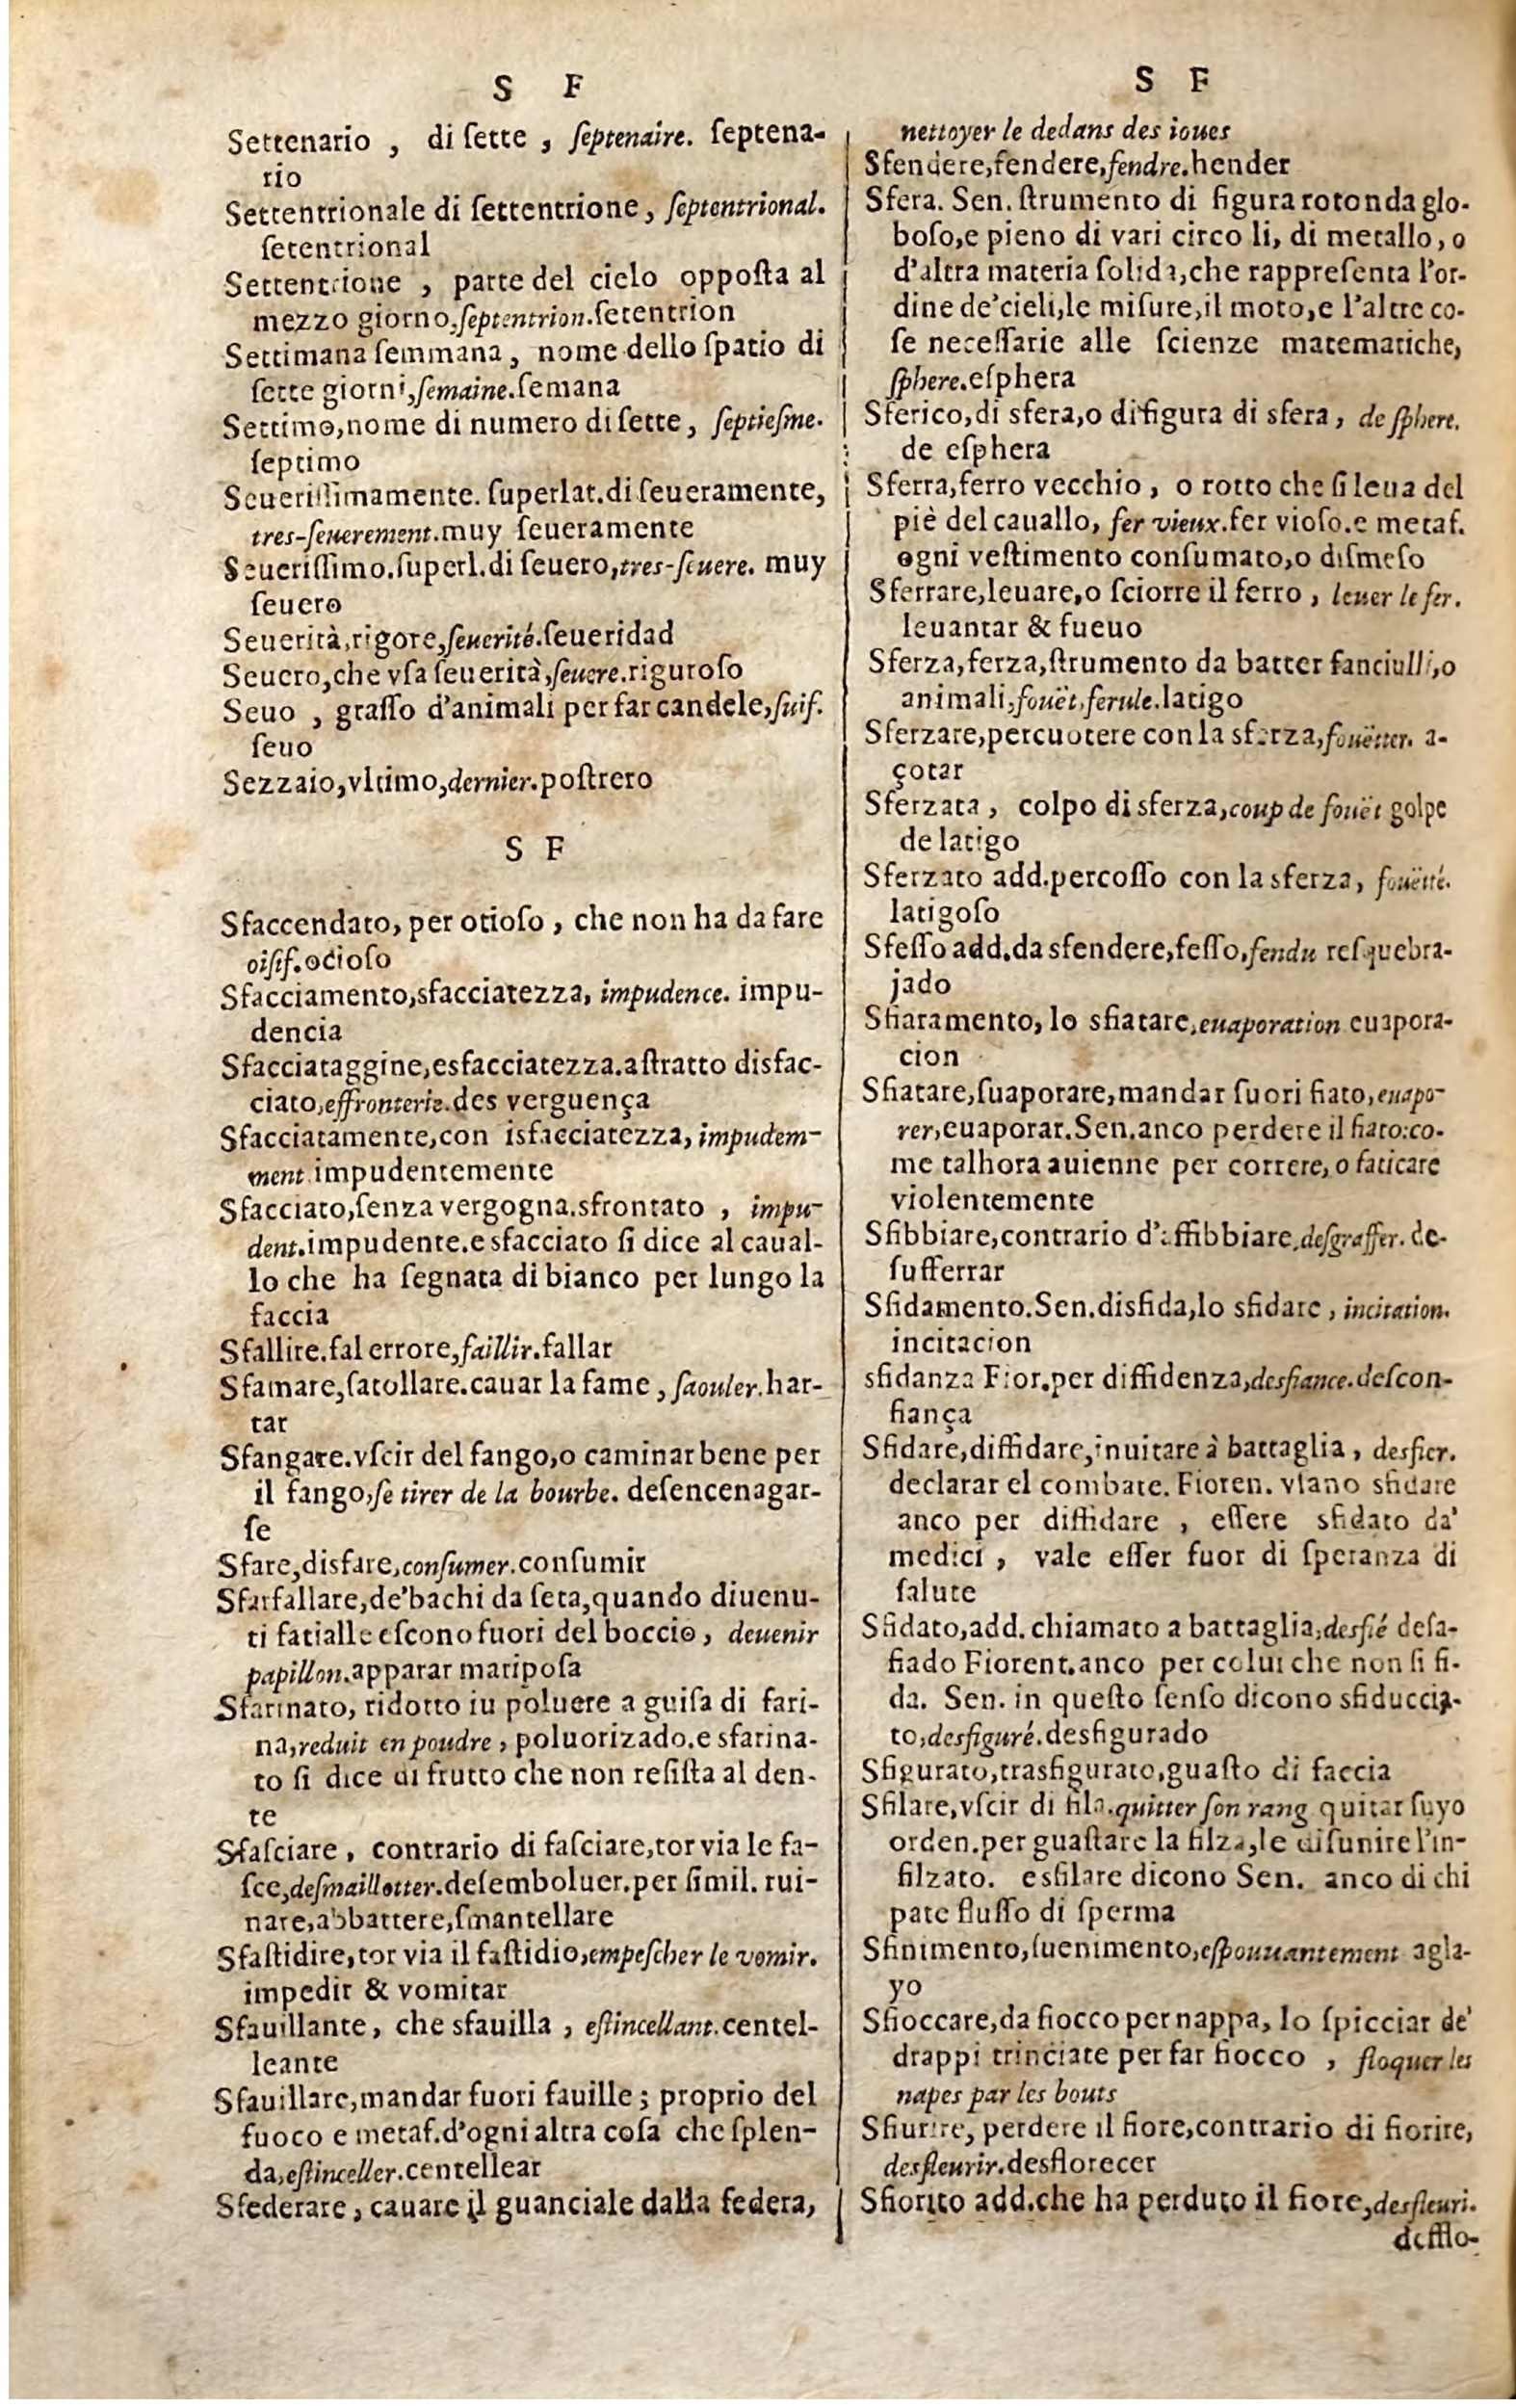 S F
Settenario , di ſette , ſeptenaire. ſeptena-
rio
Settentrionale di ſettentrione, ſeptentrional.
ſetentrional
Settentrione , parte del cielo oppoſta al
mezzo giorno,ſeptentrion.ſetentrion
Settimana ſemmana, nome dello ſpatio di
ſette giorni,ſemaine.ſemana
Settimo,nome di numero di ſette, ſeptieſme.
ſeptimo
Seueriſſimamente. ſuperlat.di ſeueramente,
tres-ſeuerement.muy ſeueramente
Seueriſſimo.ſuperl.di ſeuero,tres-ſeuere. muy
ſeuero
Seuerità,rigore,ſeuerité.ſeueridad
Seuero,che vſa ſeuerità,ſeuere.riguroſo
Seuo , graſſo d'animali per far candele,ſuif.
ſeuo
Sezzaio,vltimo,dernier.poſtrero
S F
Sfaccendato, per otioſo , che non ha da fare
oiſif.ocioſo
Sfacciamento,sfacciatezza, impudence. impu-
dencia
Sfacciataggine,esfacciatezza.aſtratto disfac-
ciato,effronterie.des verguença
Sfacciatamente,con isfacciatezza, impudem-
ment.impudentemente
Sfacciato,ſenza vergogna.sfrontato , impu-
dent.impudente.e sfacciato ſi dice al caual-
lo che ha ſegnata di bianco per lungo la
faccia
Sfallire.fal errore,faillir.fallar
Sfamare,ſatollare.cauar la fame , ſaouler.har-
tar
Sfangare.vſcir del fango,o caminar bene per
il fango,ſe tirer de la bourbe. deſencenagar-
ſe
Sfare,disfare,conſumer.conſumir
Sfarfallare,de'bachi da ſeta,quando diuenu-
ti fatialle eſcono fuori del boccio, deuenir
papillon.apparar mariposa
Sfarinato, ridotto iu poluere a guiſa di fari-
na,reduit en poudre , poluorizado.e sfarina-
to ſi dice di frutto che non reſiſta al den-
te
Sfaſciare , contrario di faſciare,tor via le fa-
ſce,deſmaillotter.deſemboluer.per ſimil. rui-
nare,abbattere,ſmantellare
Sfaſtidire,tor via il faſtidio,empeſcher le vomir.
impedir & vomitar
Sfauillante, che sfauilla , eſtincellant.centel-
leante
Sfauillare,mandar fuori fauille ; proprio del
fuoco e metaf.d'ogni altra coſa che ſplen-
da,eſtinceller.centellear
Sfederare , cauare il guanciale dalla federa,
S F
nettoyer le dedans des ioues
Sfendere,fendere,fendre.hender
Sfera. Sen. ſtrumento di figura rotonda glo-
boſo,e pieno di vari circo li, di metallo, o
d'altra materia ſolida,che rappreſenta l'or-
dine de'cieli,le miſure,il moto,e l'altre co-
ſe neceſſarie alle ſcienze matematiche,
ſphere.eſphera
Sferico,di sfera,o di figura di sfera , de ſphere.
de eſphera
Sferra,ferro vecchio , o rotto che ſi leua del
piè del cauallo, fer vieux.fer vioſo.e metaf.
ogni veſtimento conſumato,o diſmeſo
Sferrare,leuare,o ſciorre il ferro , leuer le fer.
leuantar & fueuo
Sferza,ferza,ſtrumento da batter fanciulli,o
animali,fouët,ferule.latigo
Sferzare,percuotere con la sferza,fouëtter. a-
çotar
Sferzata , colpo di sferza,coup de fouët golpe
de latigo
Sferzato add.percoſſo con la sferza, fouëtté.
latigoſo
Sfeſſo add.da sfendere,feſſo,fendu reſquebra-
jado
Sfiaramento, lo sfiatare,euaporation euapora-
cion
Sfiatare,ſuaporare,mandar fuori fiato,euapo-
rer,euaporar.Sen.anco perdere il fiato:co-
me talhora auienne per correre,o faticare
violentemente
Sfibbiare,contrario d'affibbiare,deſgraffer. de-
ſufferrar
Sfidamento.Sen.disfida,lo sfidare , incitation.
incitacion
sfidanza Fior.per diffidenza,desfiance.deſcon-
fiança
Sfidare,diffidare,inuitare à battaglia , desfier.
declarar el combate. Fioren. vſano sfidare
anco per diffidare , eſſere sfidato da'
medici , vale eſſer fuor di ſperanza di
ſalute
Sfidato,add. chiamato a battaglia,desfié deſa-
fiado Fiorent.anco per colui che non ſi fi-
da. Sen. in queſto ſenſo dicono sfiduccia-
to,desfiguré.desfigurado
Sfigurato,trasfigurato,guaſto di faccia
Sfilare,vſcir di fila.quitter ſon rang quitar ſuyo
orden.per guaſtare la filza,le diſunire l'in-
filzato. esfilare dicono Sen. anco di chi
pate fluſſo di ſperma
Sfinimento,ſuenimento,eſpouuantement agla-
yo
Sfioccare,da fiocco per nappa, lo ſpicciar de'
drappi trinciate per far fiocco , floquer les
napes par les bouts
Sfiurire, perdere il fiore,contrario di fiorire,
desfleurir.desflorecer
Sfiorito add.che ha perduto il fiore,desfleuri.
deſflo-